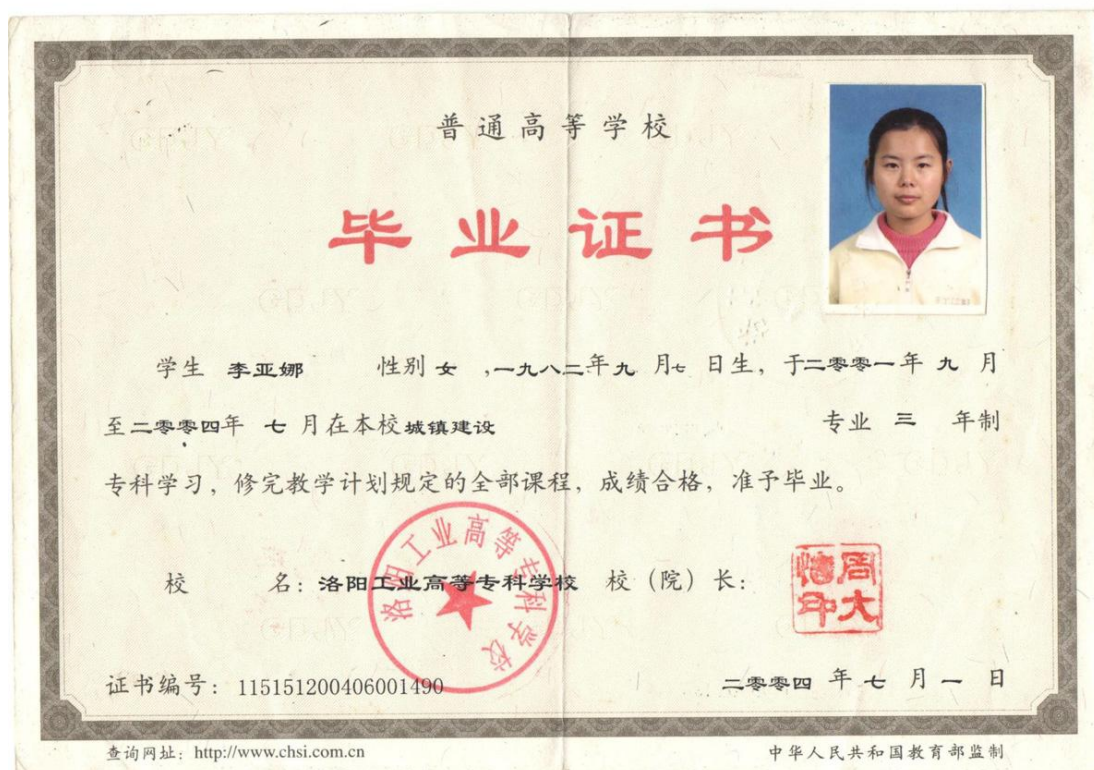 普通高等学校
毕业证书
学生 李亚娜 性别 女 ,一九八二年九 月七 日生，于二零零一年 九 月
至二零零四年 七 月在本校城镇建设 专业 三 年制
专科学习，修完教学计划规定的全部课程，成绩合格，准予毕业。
校 名：洛阳工业高等专科学校 校（院）长：
洛阳工业高等专科学校
证书编号：115151200406001490
二零零四 年 七 月 一 日
查询网址：http://www.chsi.com.cn
中华人民共和国教育部监制